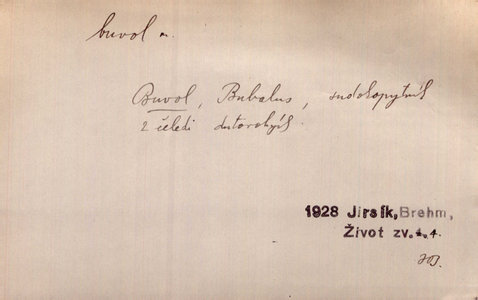 buvol m.
Buvol, Bubalus, sudokopytník
z čeledi dutorohých.
1928 Jirsík, Brehm,
Život zv. 4.